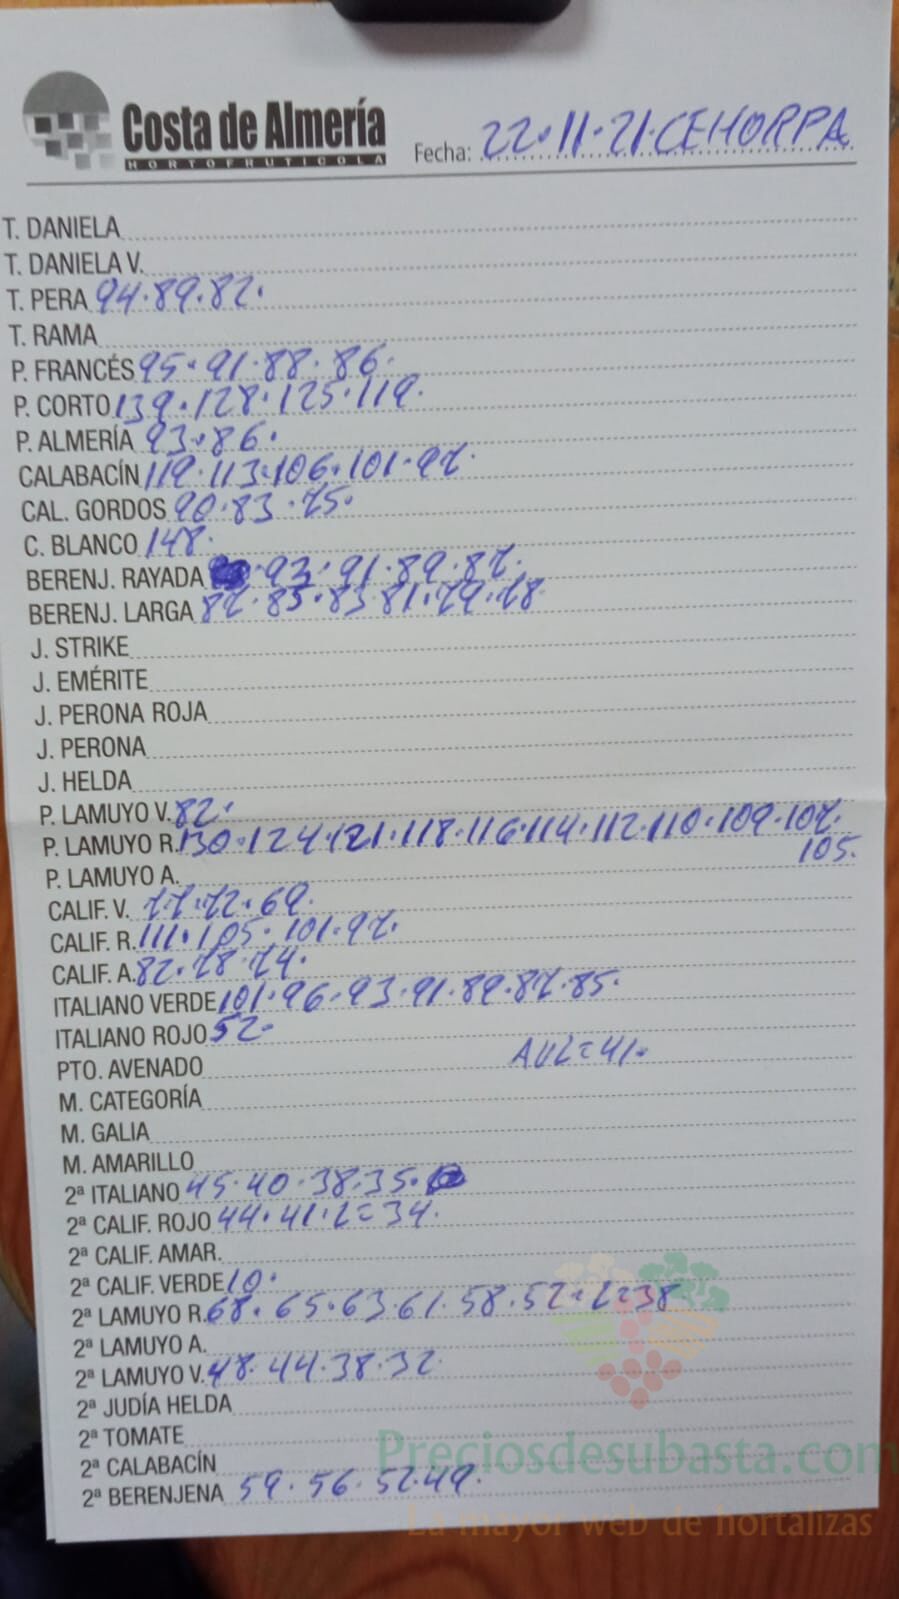 Costa de Almería
HORTOFRUTICOLA
Fecha: 22.11.21.CEHORPA
T. DANIELA
T. DANIELA V.
T. PERA 94.89.82.
T. RAMA
P. FRANCÉS 95.91.88.86.
P. CORTO 139.128.125.119.
P. ALMERÍA 93.86.
CALABACÍN 119.113.106.101.97.
CAL. GORDOS 90.83.75.
C. BLANCO 148.
BERENJ. RAYADA .93.91.89.87.
BERENJ. LARGA 87.85.83.81.79.78.
J. STRIKE
J. EMÉRITE
J. PERONA ROJA
J. PERONA
J. HELDA
P. LAMUYO V. 82.
P. LAMUYO R. 130.124.121.118.116.114.112.110.109.107.
105.
P. LAMUYO A.
CALIF. V. 77.72.69.
CALIF. R. 111.105.101.97.
CALIF. A. 82.78.74.
ITALIANO VERDE 101.96.93.91.89.87.85.
ITALIANO ROJO 52.
PTO. AVENADO
M. CATEGORÍA
M. GALIA
M. AMARILLO
2ª ITALIANO 45.40.38.35.
2ª CALIF. ROJO 44.41.2=34.
2ª CALIF. AMAR.
2ª CALIF. VERDE 10.
2ª LAMUYO R. 68.65.63.61.58.57.2=38
2ª LAMUYO A.
2ª LAMUYO V. 48.44.38.32.
2ª JUDÍA HELDA
2ª TOMATE
2ª CALABACÍN
2ª BERENJENA 59.56.52.49.
Preciosdesubasta.com
La mayor web de hortalizas